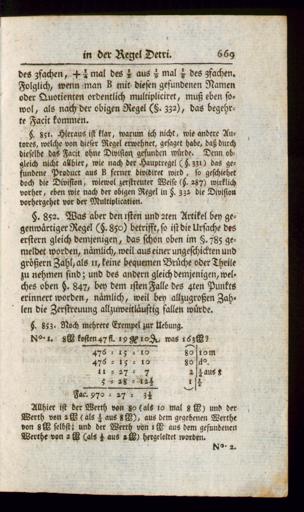 in der Regel Detri. 669
des 3fachen, + ¼ mal des ⅛ aus ⅛ mal ⅛ des 3fachen.
Folglich, wenn man B mit diesen gefundenen Namen
oder Quotienten ordentlich multipliciret, muß eben so-
wol, als nach der obigen Regel (§. 332), das begehr-
te Facit kommen.
§. 851. Hieraus ist klar, warum ich nicht, wie andere Au-
tores, welche von dieser Regel erwehnet, gesaget habe, daß durch
dieselbe das Facit ohne Division gefunden würde. Denn ob-
gleich nicht allhier, wie nach der Hauptregel (§. 331) das ge-
fundene Product aus B ferner dividiret wird, so geschiehet
doch die Division, wiewol zerstreuter Weise (§. 287) wirklich
vorher, eben wie nach der obigen Regel in §. 332 die Division
vorhergehet vor der Multiplication.
§. 852. Was aber den 1sten und 2ten Artikel bey ge-
genwärtiger Regel (§. 850) betrifft, so ist die Ursache des
erstern gleich demjenigen, das schon oben im §. 785 ge-
meldet worden, nämlich, weil aus einer ungeschickten und
größern Zahl, als 11, keine bequemen Brüche oder Theile
zu nehmen sind; und des andern gleich demjenigen, wel-
ches oben §. 847, bey dem 1sten Falle des 4ten Punkts
erinnert worden, nämlich, weil bey allzugroßen Zah-
len die Zerstreuung allzuweitläuftig fallen würde.
§. 853. Noch mehrere Exempel zur Uebung.
No. 1. 8 ℔ kosten 47 fl. 19 10 was 163 ℔?
476 : 15 : 10 80 10 m
476 : 15 : 10 80 do.
11 : 27 : 7 2 ¼ aus 8
5 : 28 : 12½ 1 ½
Fac. 970 : 27 : 3½
Allhier ist der Werth von 80 (als 10 mal 8 ℔) und der
Werth von 2 ℔ (als ¼ aus 8 ℔), aus dem gegebenen Werthe
von 8 ℔ selbst; und der Werth von 1 ℔ aus dem gefundenen
Werthe von 2 ℔ (als ½ aus 2 ℔) hergeleitet worden.
No. 2.